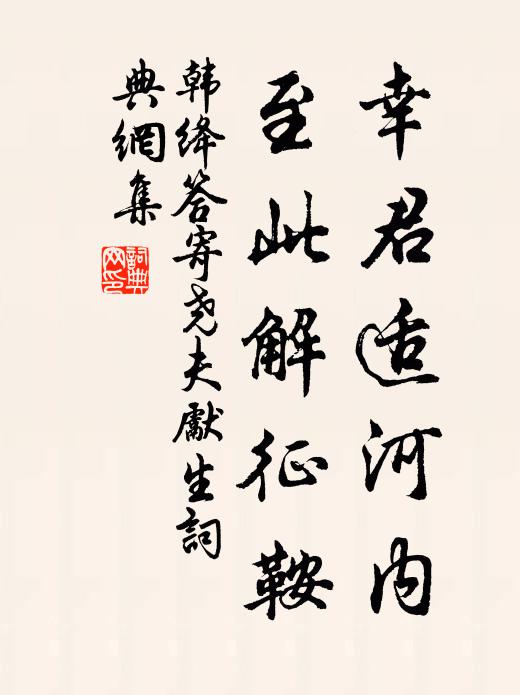 幸君适河内
至此解征鞍
韩绛答寄尧夫獻生詞
典網集
詞典网印